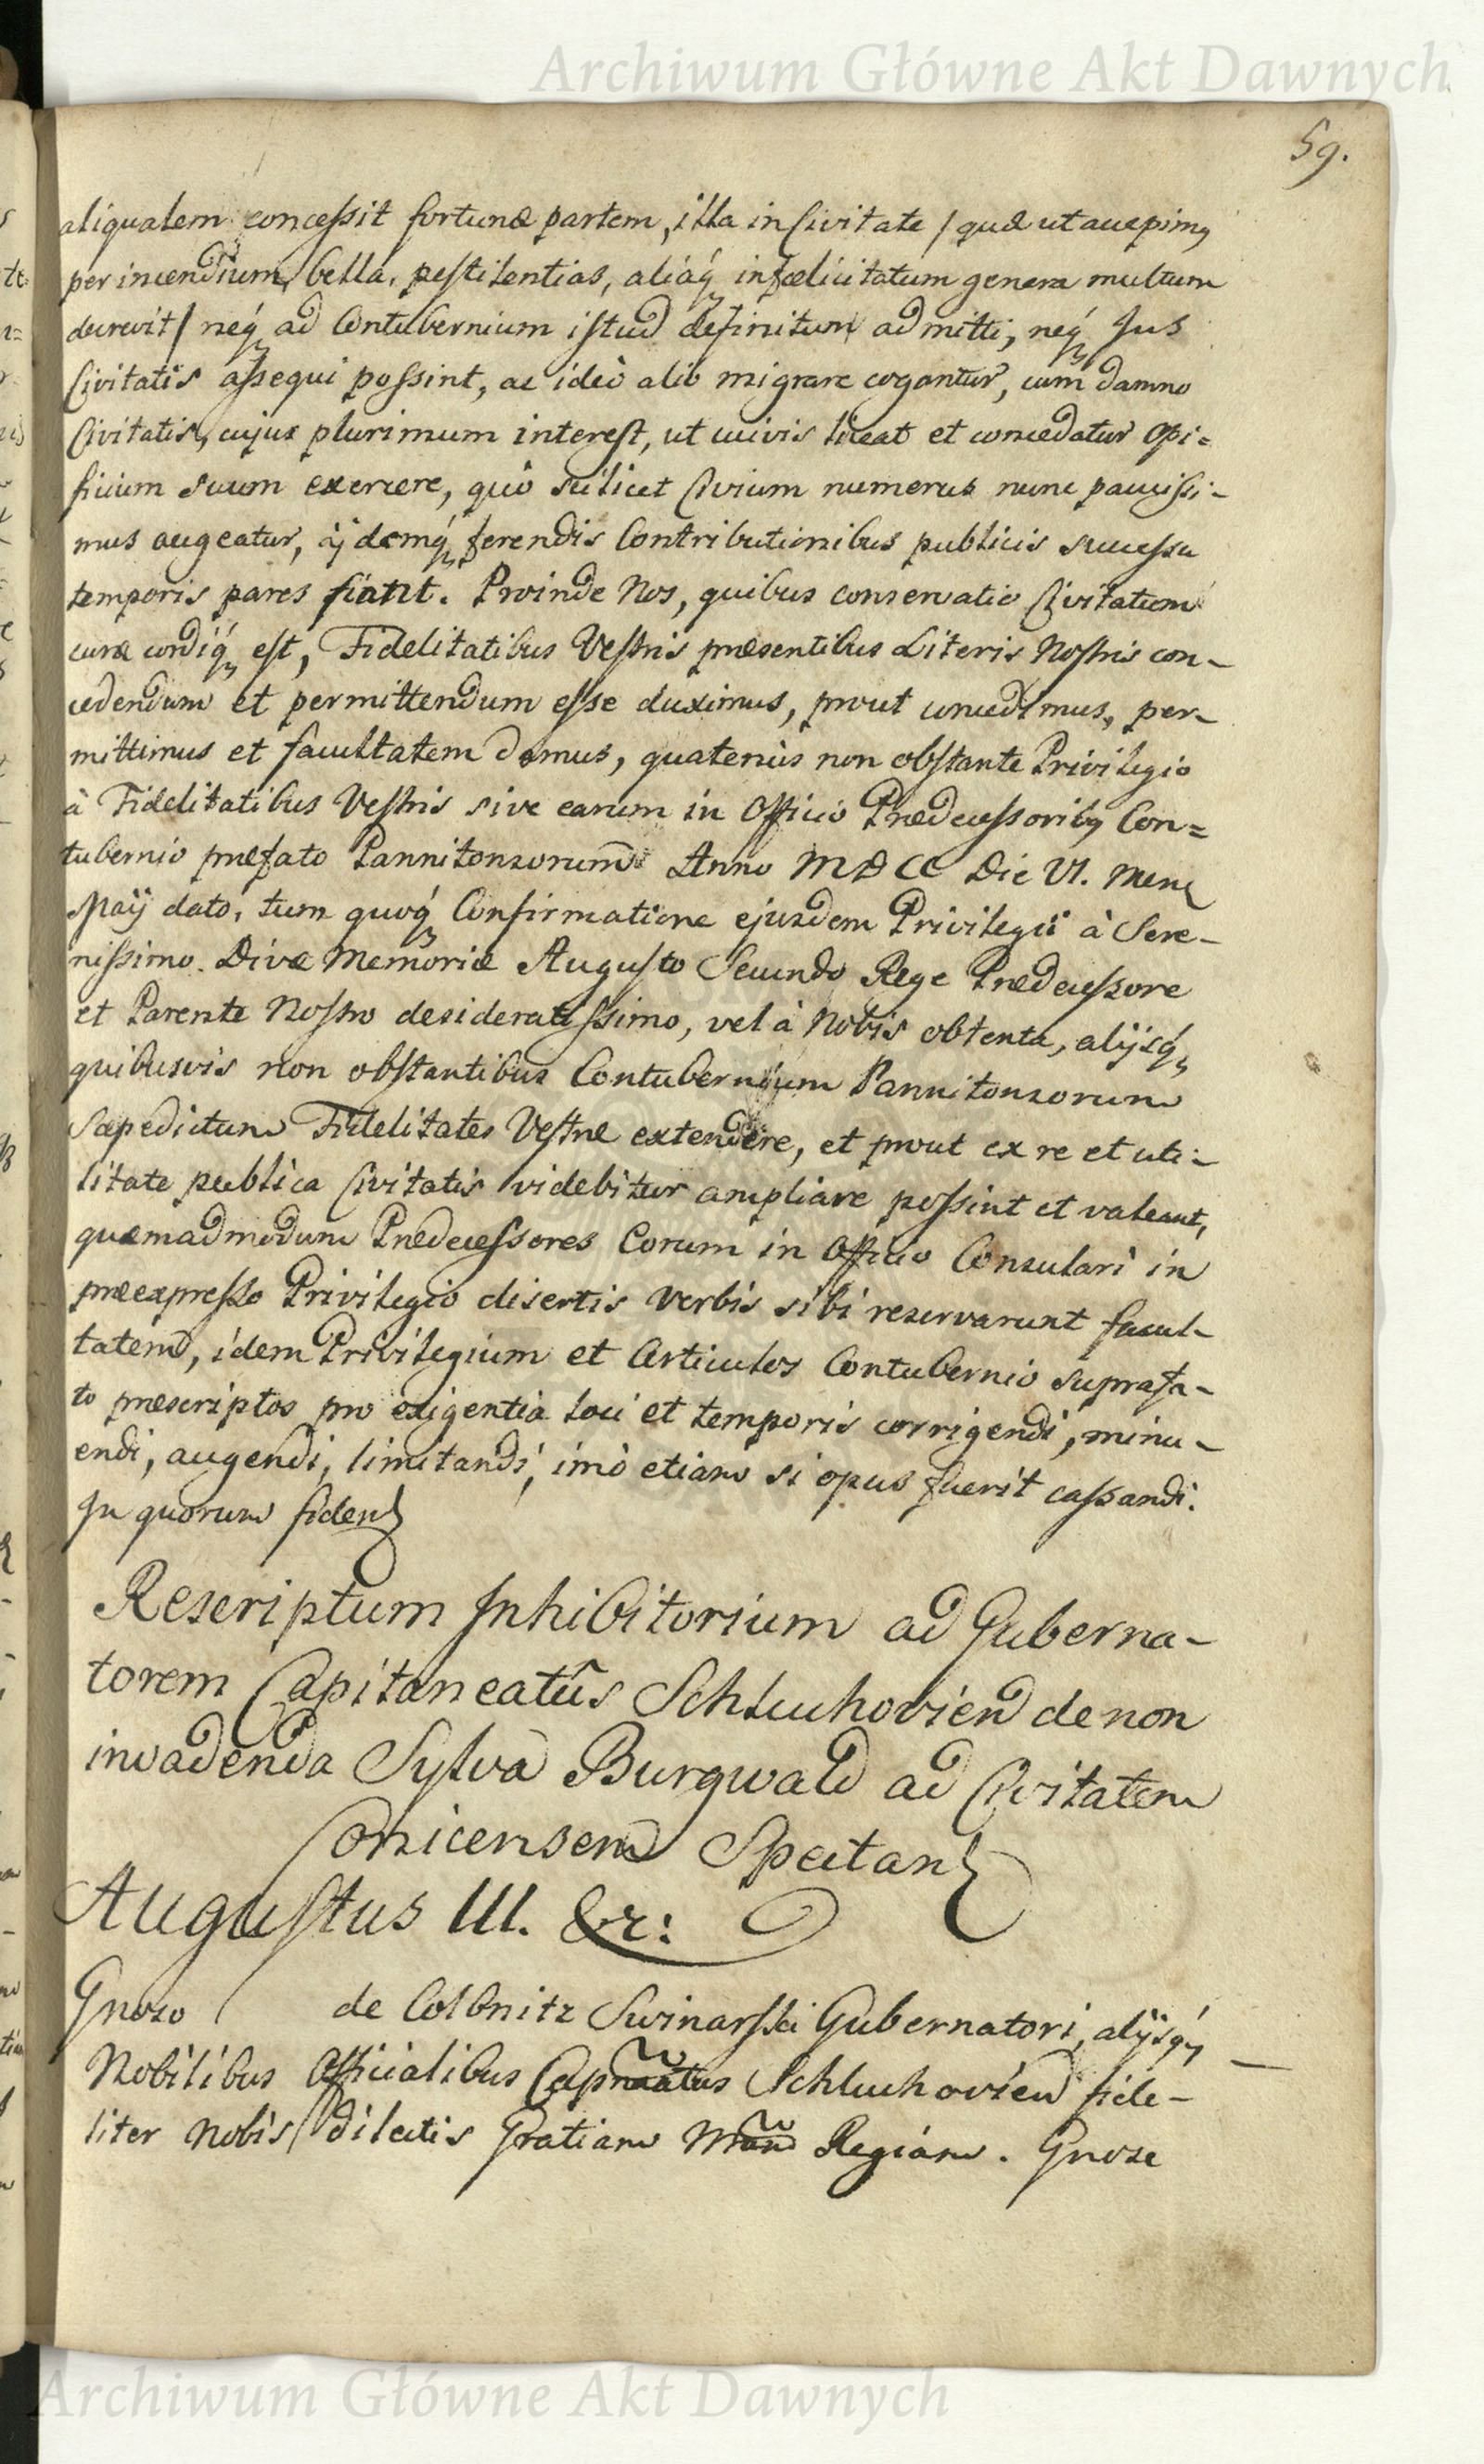 Archiwum Główne Akt Dawnych
59.
aliqualem concessit fortunæ partem, illa in Civitate / quæ ut accepimq
per incendium, bella, pestilentias, aliaq infœlicitatum genera multum
decrevit / neq ad Contubernium istud definitum admitti, neq Jus
Civitatis assequi possint, ac ideò alio migrare cogantur, cum damno
Civitatis, cujus plurimum interest, ut cuivis liceat et concedatur Opi=
ficium suum exercere, quò scilicet Civium numerus nunc paucissi-
mus augeatur, ijdemq ferendis Contributionibus publicis successu
temporis pares fiant. Proinde Nos, quibus conservatio Civitatum
curæ cordiq est, Fidelitatibus Vestris præsentibus Literis Nostris con-
cedendum et permittendum esse duximus, prout concedimus, per-
mittimus et facultatem damus, quatenùs non obstante Privilegio
à Fidelitatibus Vestris sive earum in Officio Prædecessoribq Con=
tubernio præfato Pannitonsorum Anno MDCC Die VI. Mens
Maÿ dato, tum quoq Confirmatione ejusdem Privilegii à Sere-
nissimo Divæ Memoriæ Augusto Secundo Rege Prædecessore
et Parente Nostro desideratissimo, vel à Nobis obtenta, alijsq
quibusvis non obstantibus Contubernium Pannitonsorum
sæpedictum Fidelitates Vestræ extendere, et prout ex re et uti-
litate publica Civitatis videbitur ampliare possint et valeant,
quemadmodum Prædecessores Eorum in Officio Consulari in
præexpresso Privilegio disertis verbis sibi reservarunt facul-
tatem, idem Privilegium et Articulos Contubernio suprafa-
to præscriptos pro exigentia loci et temporis corrigendi, minu-
endi, augendi, limitandi, imò etiam si opus fuerit cassandi.
In quorum fidem
Rescriptum Inhibitorium ad Guberna-
torem Capitaneatûs Schluchovien de non
invadenda Sylva Burgwald ad Civitatem
Conicensem Spectan
Augustus III. &c:
Gnoso de Colbnitz Swinarski Gubernatori, alijsq
Nobilibus Officialibus Capnaatus Schluchovien fide-
liter Nobis dilectis Gratiam Nram Regiam. Gnose
Archiwum Główne Akt Dawnych